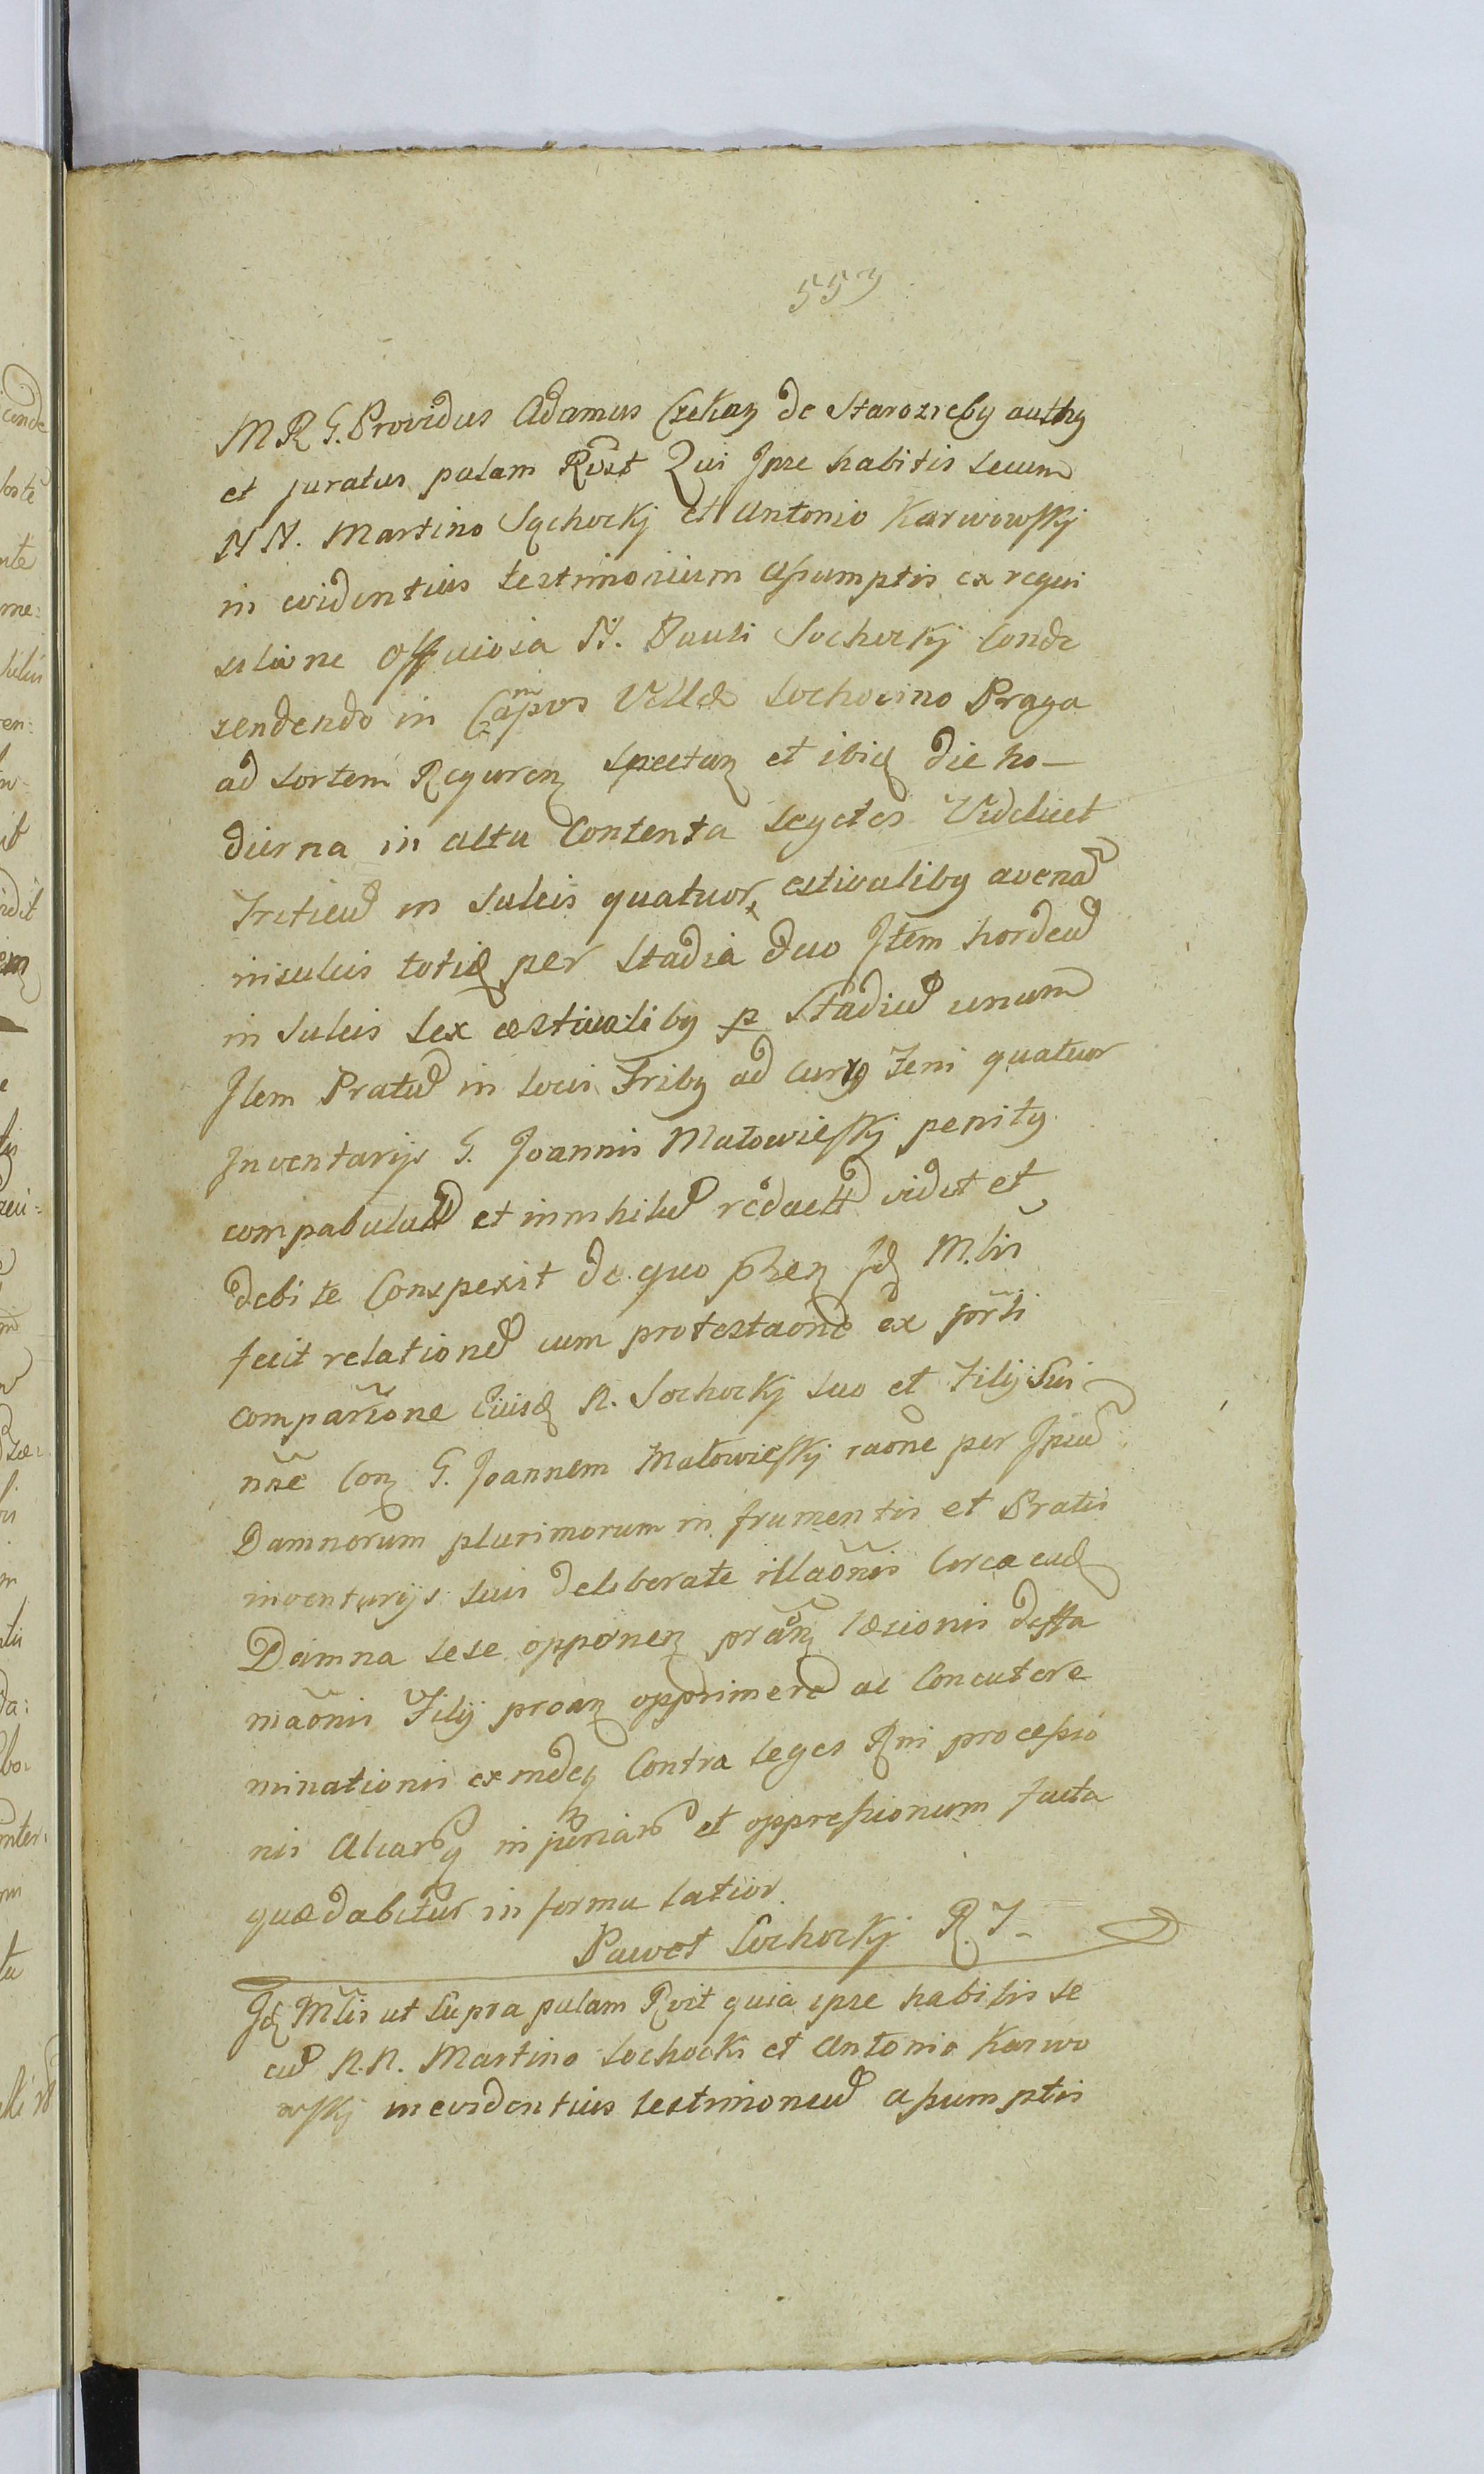 553
M R G. Providus Adamus Czekay de Starozreby authy
et juratus palam Rvit Qui Ipse habitis secum
N N. Martino Sochockj et Antonio Karwowskj
in evidentius testimonium assumptis ex requi
sitione officiosa N. Pauli Sochockj Conde
sendendo in Campos Villæ Sochocino Praga
ad sortem spectan et ibid die ho-
dierna in altu Contenta segetes Videlicet
Triticu in sulcis quatuor, estivaliby avena
in sulcis totid per stadia duo Item hordeu
in sulcis sex æstivaliby p stadiu unum
Item Pratu in locis Triby ad currg feni quatuor
Inventarijs G. Joannis Małowieskj penity
compabulatu et in nihilu redactu vidit et
debite Conspexit de quo pnen Id M.lis
fecit relatione cum protestaone ex pnti
compariõne Eiusd N. Sochockj suo et Filij Sui
nne Con G. Joannem Małowieskj raone per Ipsu
Damnorum plurimorum in frumentis et Pratis
inventarijs suis deliberate illaõnis Circa ead
Damna sese opponen læsionis deffa
maõnis Filij opprimere ac Concutere
minationis Contra leges Rni processio
nis Aliarq injuriaru et oppressionum facta
quæ dabitur in forma latior.
Paweł Sochockj R. T.
Id Mlis ut Supra palam Rvit quia ipse habitis se
cu N.N. Martino Sochocki et Antonio Karwo
wskj in evidentius testimoniu assumptis